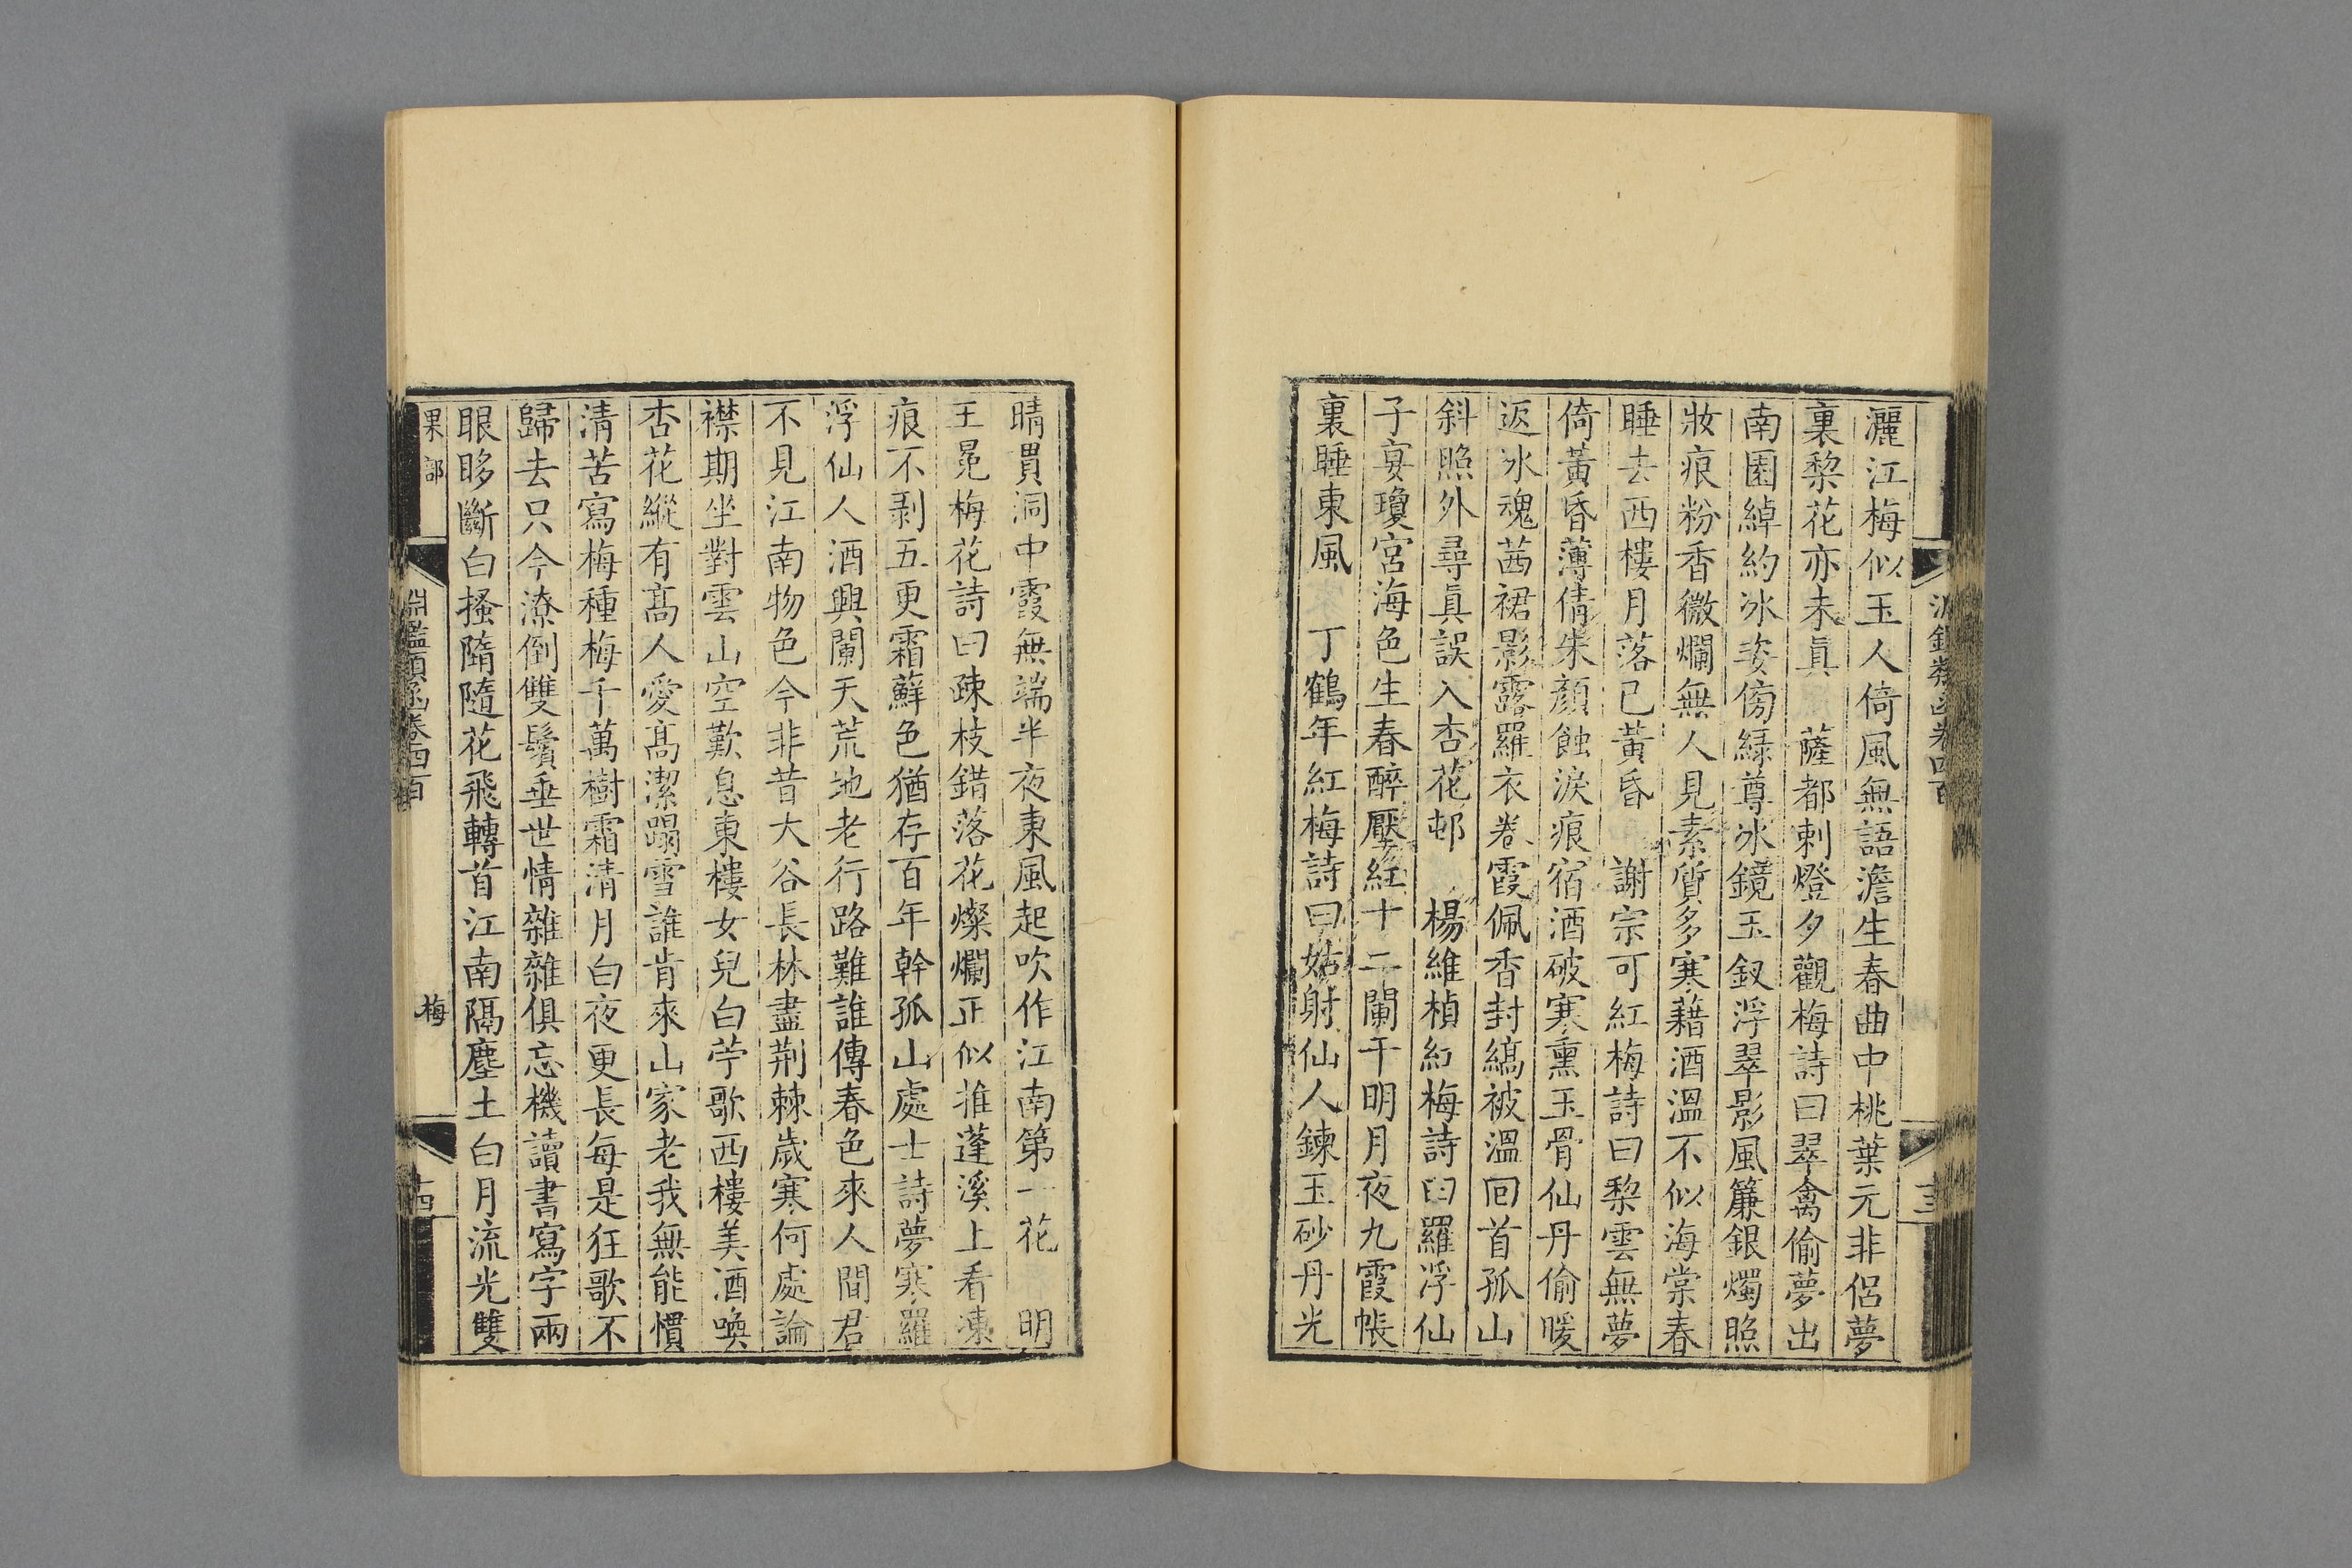 灑江梅似玉人倚風無語澹生春曲中桃葉元非侶夢
裏梨花亦未眞　薩都剌燈夕觀梅詩曰翠禽偷夢出
南園綽約冰姿傍綠尊冰鏡玉釵浮翠影風簾銀燭照
妝痕粉香微爛無人見素質多寒藉酒溫不似海棠春
睡去西樓月落已黃昏　謝宗可紅梅詩曰梨雲無夢
倚黃昏薄倩朱顏蝕淚痕宿酒破寒熏玉骨仙丹偷暖
返冰魂茜裙影露羅衣卷霞佩香封縞被溫回首孤山
斜照外尋眞誤入杏花邨　楊維楨紅梅詩曰羅浮仙
子宴瓊宮海色生春醉壓紅十二闌干明月夜九霞帳
裏睡東風　丁鶴年紅梅詩曰姑射仙人鍊玉砂丹光
晴貫洞中霞無端半夜東風起吹作江南第一花　明
王冕梅花詩曰疎枝錯落花燦爛正似推蓬溪上看凍
痕不剥五更霜蘚色猶存百年幹孤山處士詩夢寒羅
浮仙人酒興闌天荒地老行路難誰傳春色來人間君
不見江南物色今非昔大谷長林盡荆棘歲寒何處論
襟期坐對雲山空歎息東樓女兒白苧歌西樓美酒喚
杏花縱有高人愛高潔蹋雪誰肯來山家老我無能慣
清苦寫梅種梅千萬樹霜清月白夜更長每是狂歌不
歸去只今潦倒雙鬢垂世情雜雜俱忘機讀書寫字兩
眼眵斷白搔隨隨花飛轉首江南隔塵土白月流光雙
果部　淵鑑類函卷四百　梅　十四